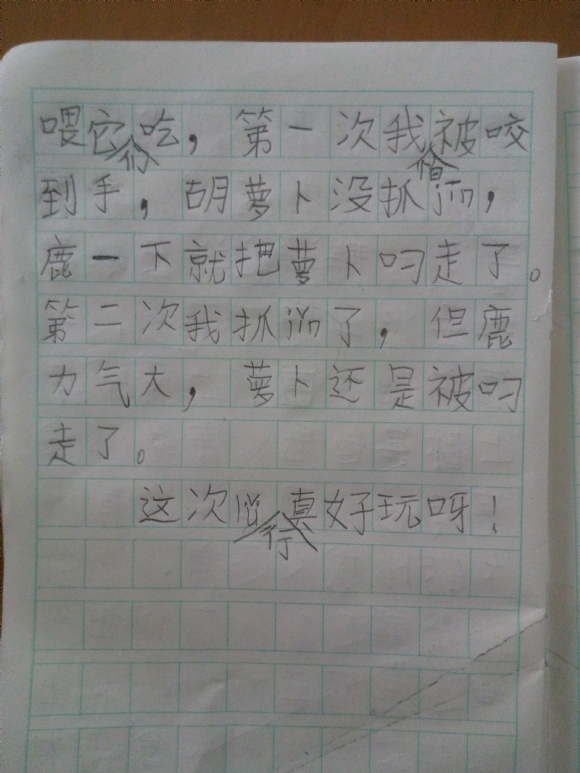 喂它们吃，第一次我怕被咬
到手，胡萝卜没抓jǐn，
鹿一下就把萝卜叼走了。
第二次我抓jǐn了，但鹿
力气大，萝卜还是被叼
走了。
这次行真好玩呀！